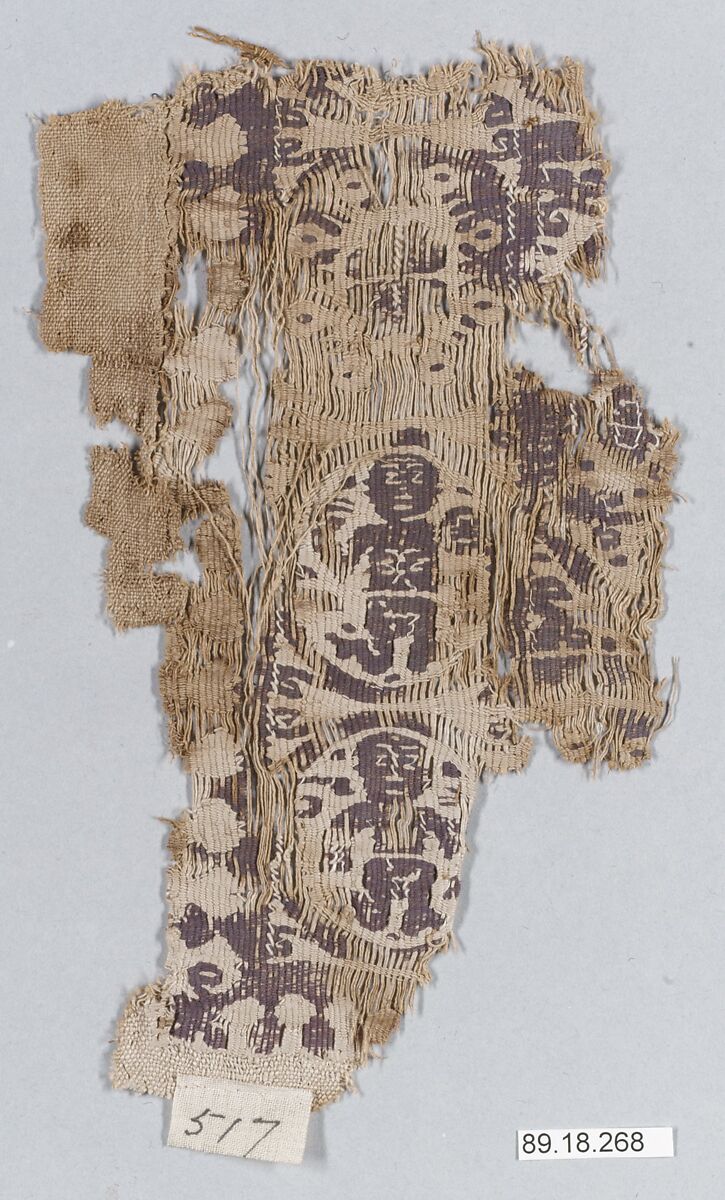 517
89.18.268